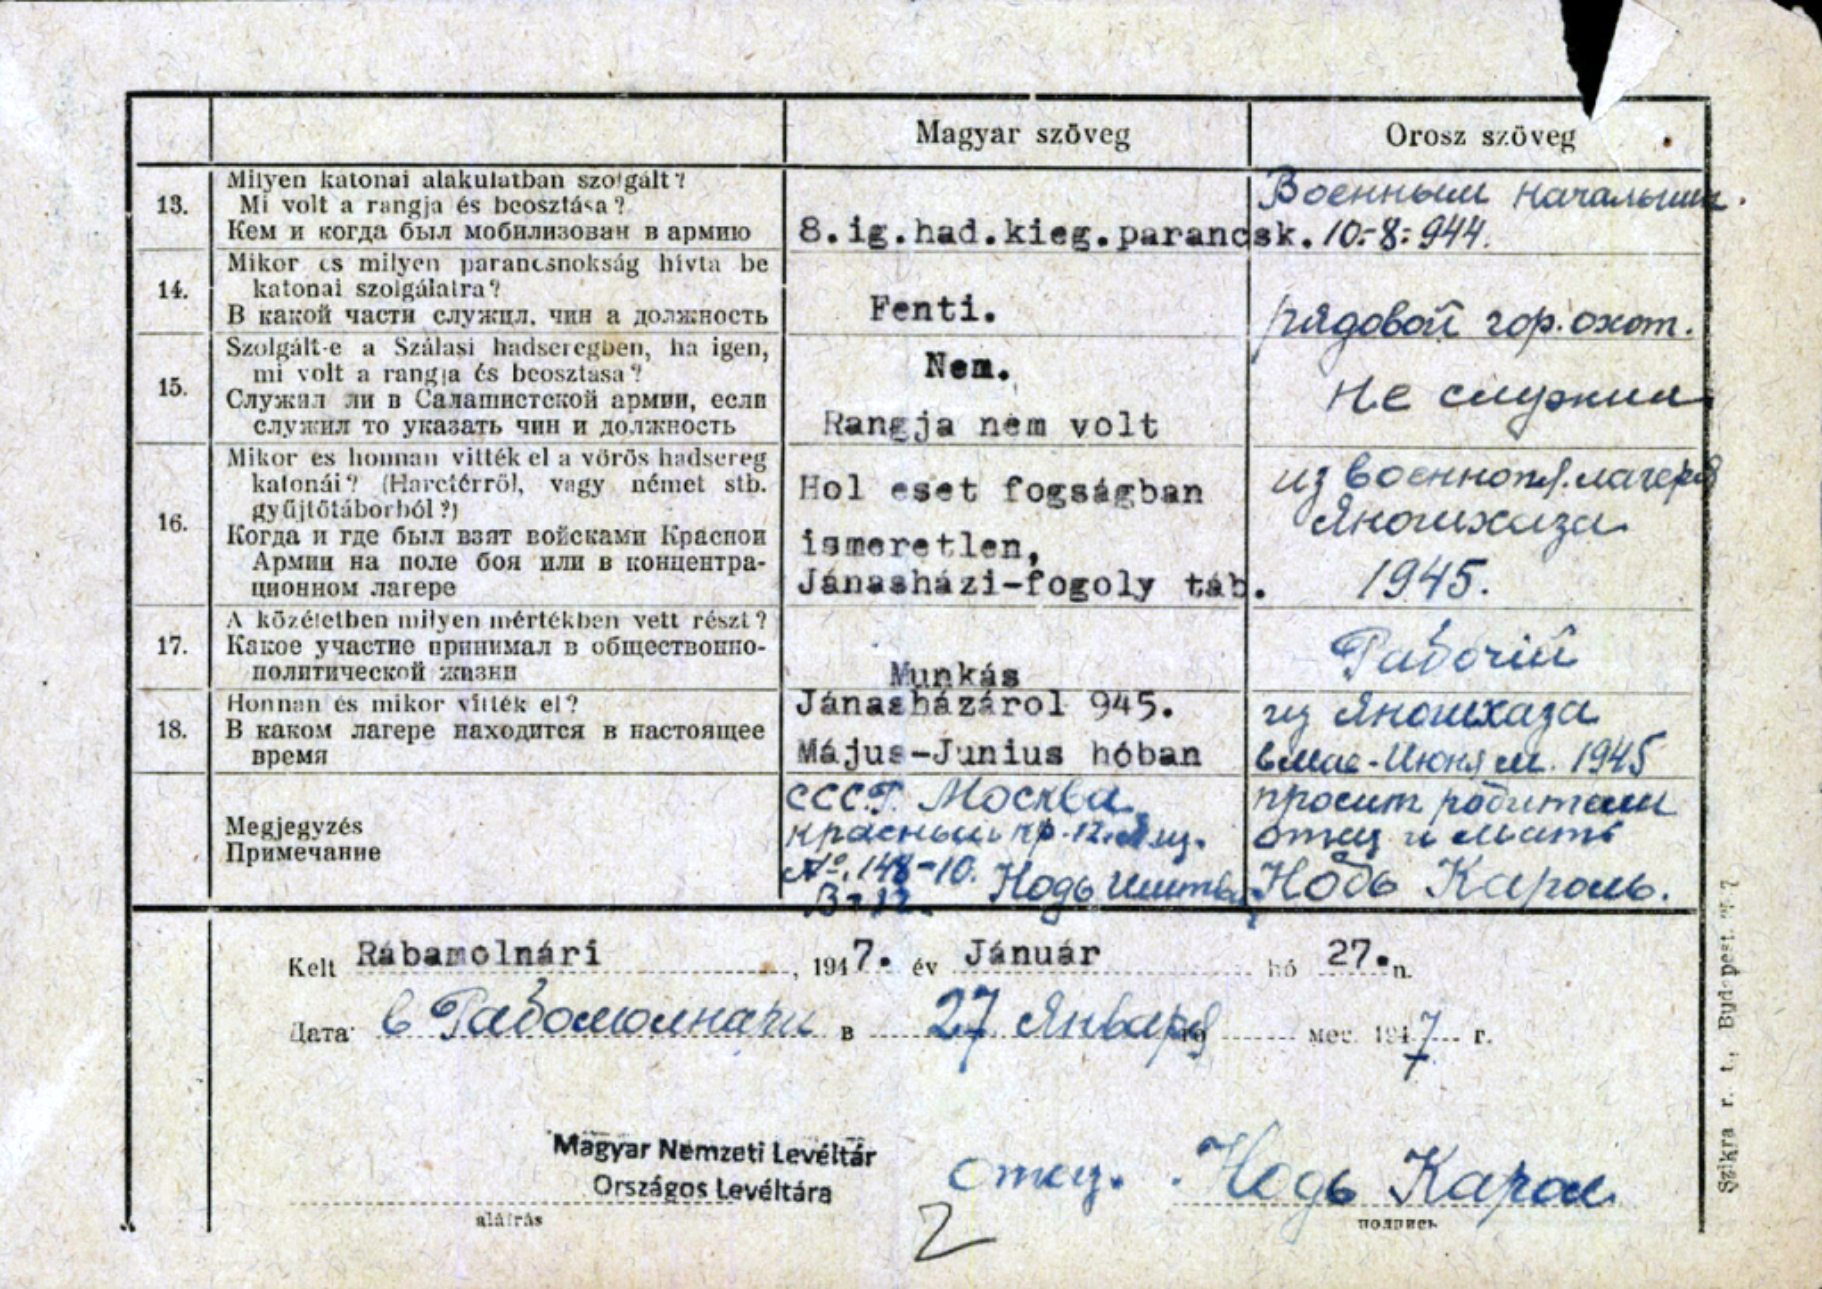 Magyar szöveg
Orosz szöveg
13.
Milyen katonai alakulatban szolgált?
Mi volt a rangja és beosztása?
Кем и когда был мобилизован в армию
8.ig.had.kieg.parancsk.
Военным
10.-8.-944.
14.
Mikor és milyen parancsnokság hívta be
katonai szolgálatra?
В какой части служил, чин а должность
Fenti.
рядовой гор. охот.
15.
Szolgált-e a Szálasi hadseregben, ha igen,
mi volt a rangja és beosztása?
Служил ли в Салашистской армии, если
служил то указать чин и должность
Nem.
Rangja nem volt
не служил
16.
Mikor és honnan vitték el a vörös hadsereg
katonái? (Harctérről, vagy német stb.
gyűjtőtáborból?)
Когда и где был взят войсками Красной
Армии на поле боя или в концентра-
ционном лагере
Hol eset fogságban
ismeretlen,
Jánasházi-fogoly táb.
из военнопл. лагеря
Яношхаза
1945.
17.
A közéletben milyen mértékben vett részt?
Какое участие принимал в общественно-
политической жизни
Munkás
Рабочий
18.
Honnan és mikor vitték el?
В каком лагере находится в настоящее
время
Jánasházárol 945.
Május-Junius hóban
из Яношхаза
в мае-Июня м. 1945
Megjegyzés
Примечание
СССР. Москва
красный кр.
№. 148-10. Нодь
просит родители
отец и мать
Нодь Кароль.
Kelt Rábamolnári, 1947. év Január hó 27.n.
Дата: в Рабомолнари в 27 Января мес. 1947 г.
Magyar Nemzeti Levéltár
Országos Levéltára
отец. Нодь Карол
aláírás
подпись
2
Szikra r. t., Budapest.